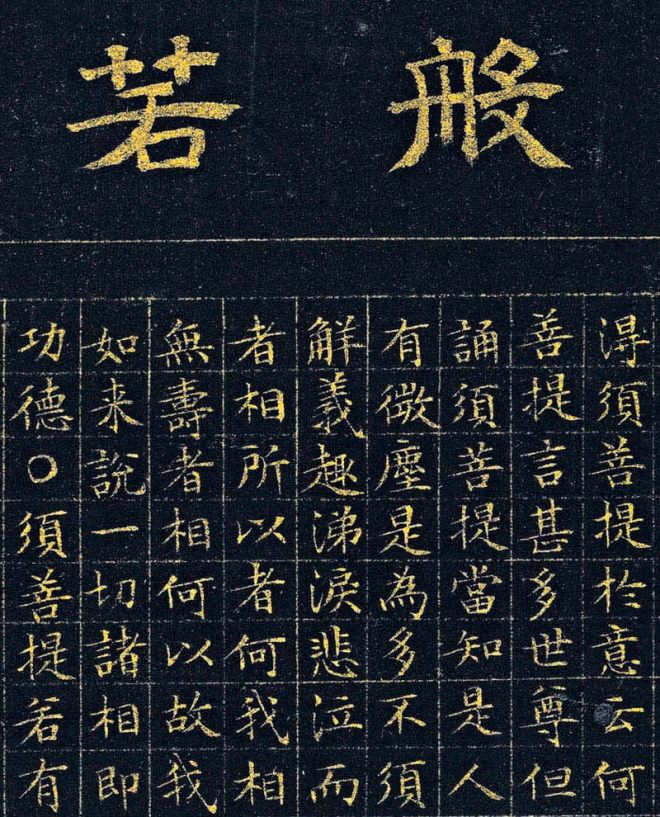 般若
淂須菩提於意云何
菩提言甚多世尊但
誦須菩提當知是人
有微塵是為多不須
解義趣涕淚悲泣而
者相所以者何我相
無壽者相何以故我
如来說一切諸相即
功德〇須菩提若有